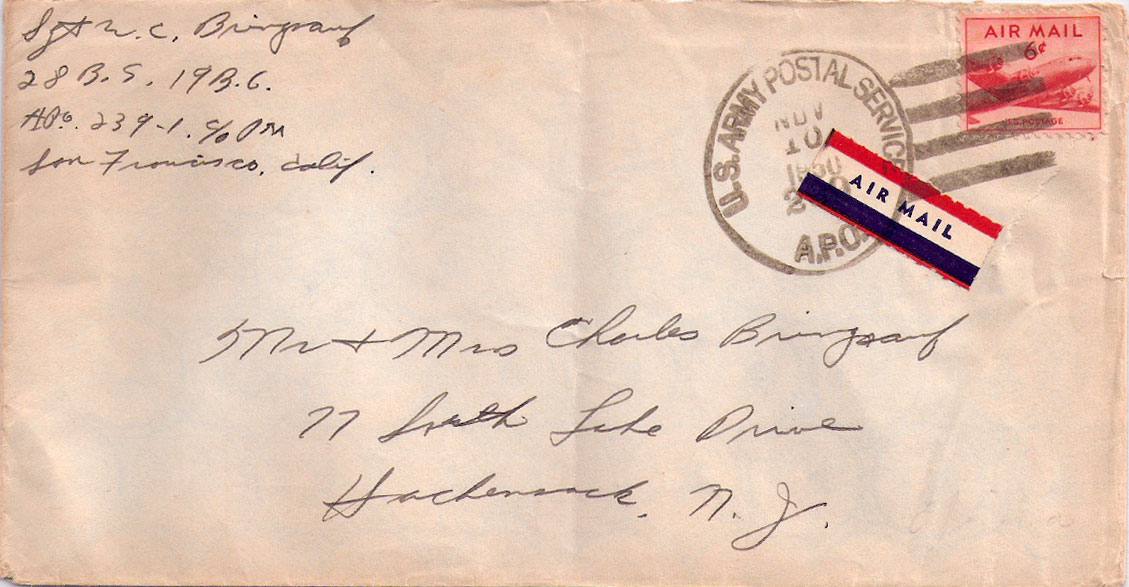 Sgt W. C. Bringrauf
28 B.S. 19 B.G.
APO. 239-1, c/o PM
San Francisco, Calif.
AIR MAIL
6¢
U.S. POSTAGE
U.S. ARMY POSTAL SERVICE
NOV
10
1950
A.P.O.
AIR MAIL
Mr & Mrs Charles Bringrauf
77 South Lake Drive
Hackensack, N. J.